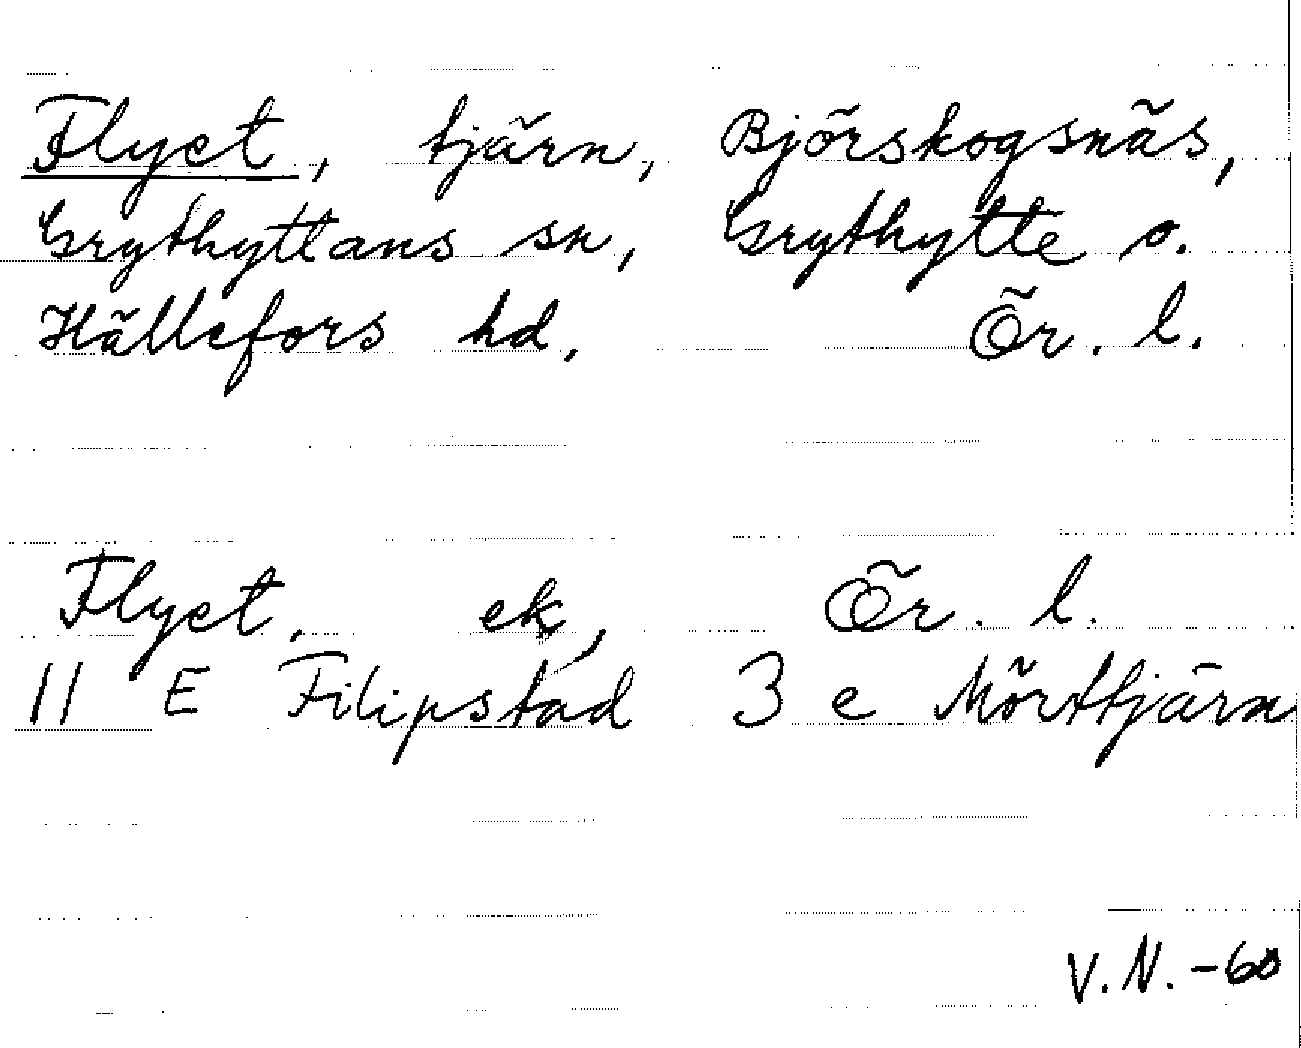 Flyet, tjärn, Björskogsnäs,
Grythyttans sn, Grythytte o.
Hällefors hd, Ör. l.
Flyet, ek, Ör. l.
11 E Filipstad 3 e Mörttjärn
V.N. -60